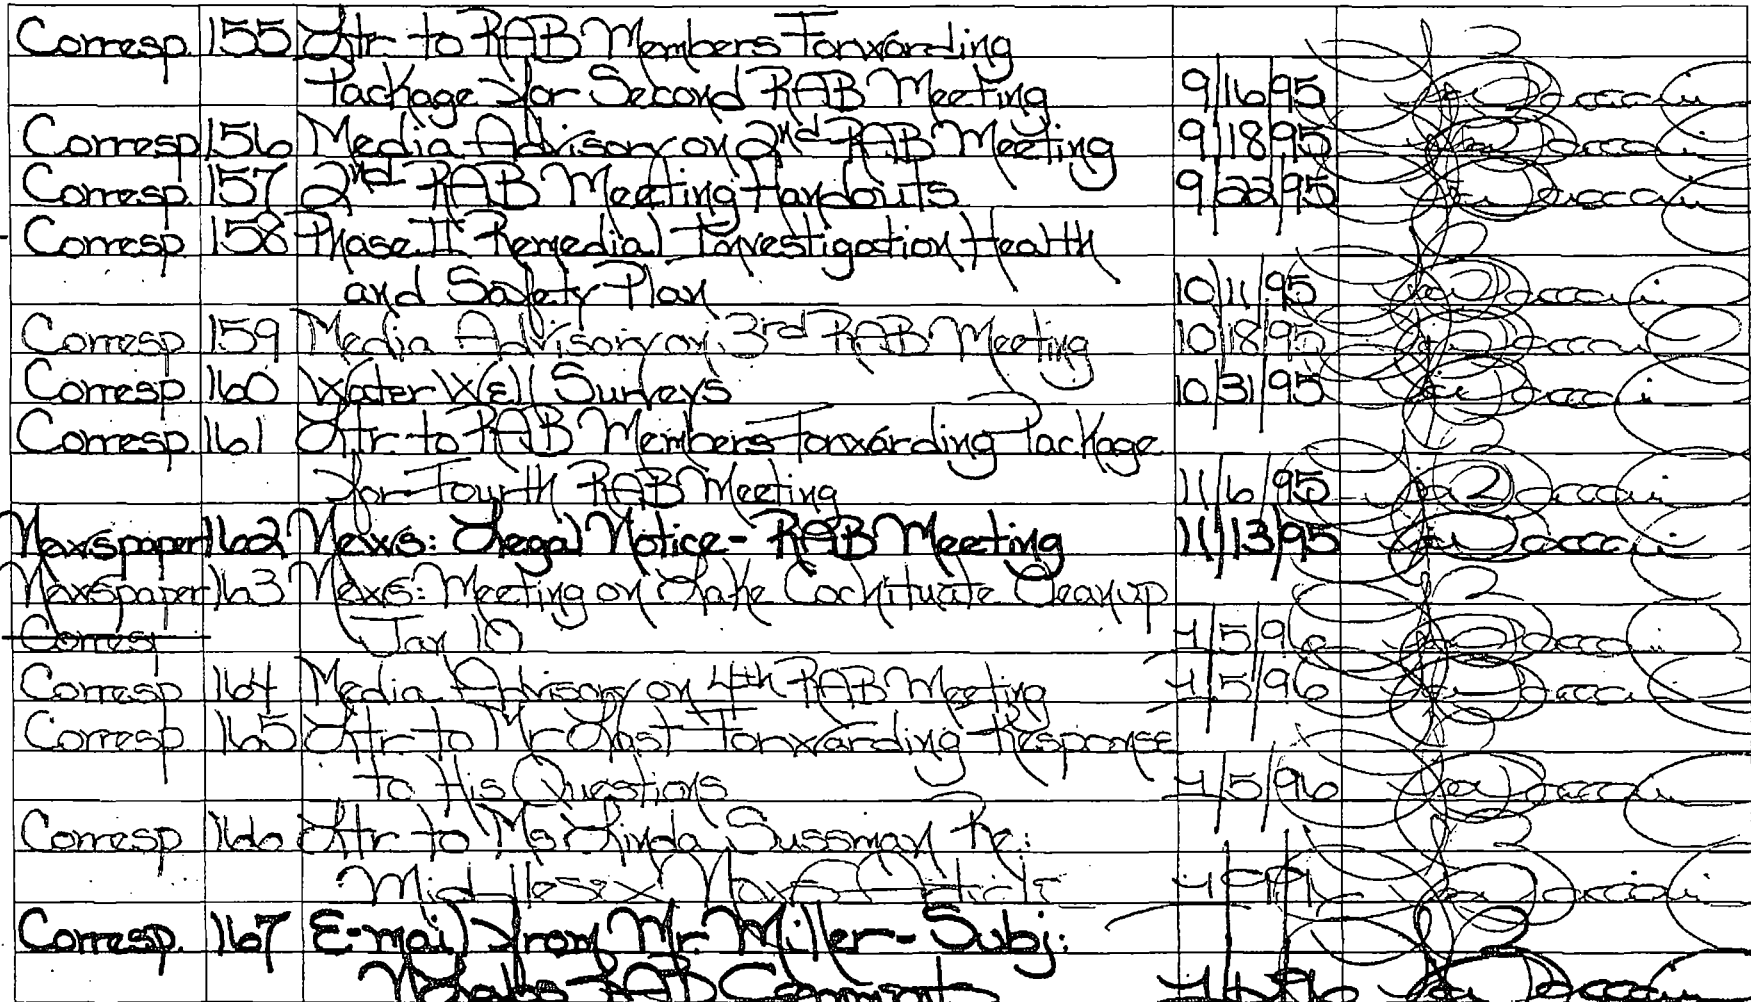 Corresp. 155 Ltr. to RAB Members Forwarding
Package for Second RAB Meeting 9/16/95
Corresp. 156 Media Advisory on 2nd RAB Meeting 9/18/95
Corresp. 157 2nd RAB Meeting Handouts 9/22/95
Corresp. 158 Phase II Remedial Investigation Health
and Safety Plan 10/11/95
Corresp 159 Media Advisory on 3rd RAB Meeting 10/18/95
Corresp 160 Water Well Surveys 10/31/95
Corresp. 161 Ltr. to RAB Members Forwarding Package
for Fourth RAB Meeting 11/6/95
Newspaper 162 News: Legal Notice - RAB Meeting 11/13/95
Newspaper 163 News: Meeting on Lake Cochituate Cleanup
Corresp Jan 10 1/5/96
Corresp 164 Media Advisory on 4th RAB Meeting 1/5/96
Corresp 165 Ltr to Mr Last Forwarding Response
to His Questions 1/5/96
Corresp 166 Ltr to Ms Linda Sussman Re:
Middlesex News Article
Corresp. 167 E-mail from Mr. Miller - Subj:
RAB Comments